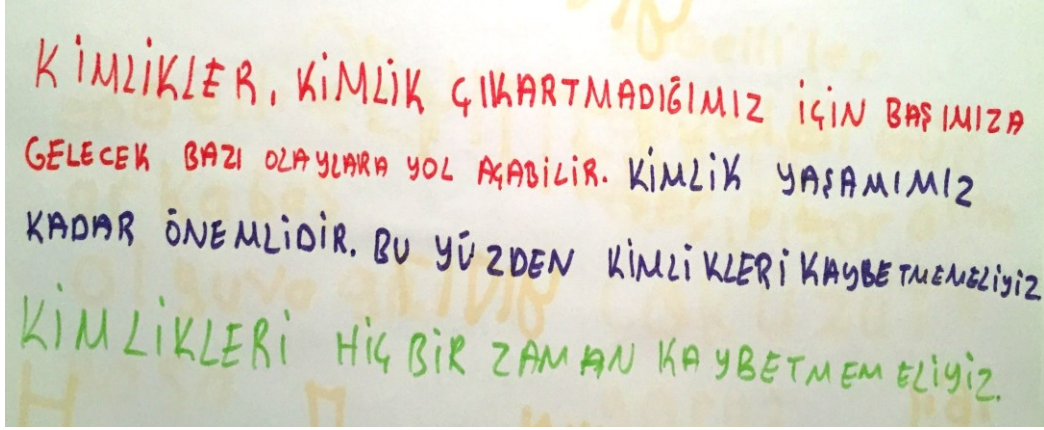 KİMLİKLER, KİMLİK ÇIKARTMADIĞIMIZ İÇİN BAŞIMIZA
GELECEK BAZI OLAYLARA YOL AÇABİLİR. KİMLİK YAŞAMIMIZ
KADAR ÖNEMLİDİR. BU YÜZDEN KİMLİKLERİ KAYBETMEMELİYİZ
KİMLİKLERİ HİÇ BİR ZAMAN KAYBETMEMELİYİZ.